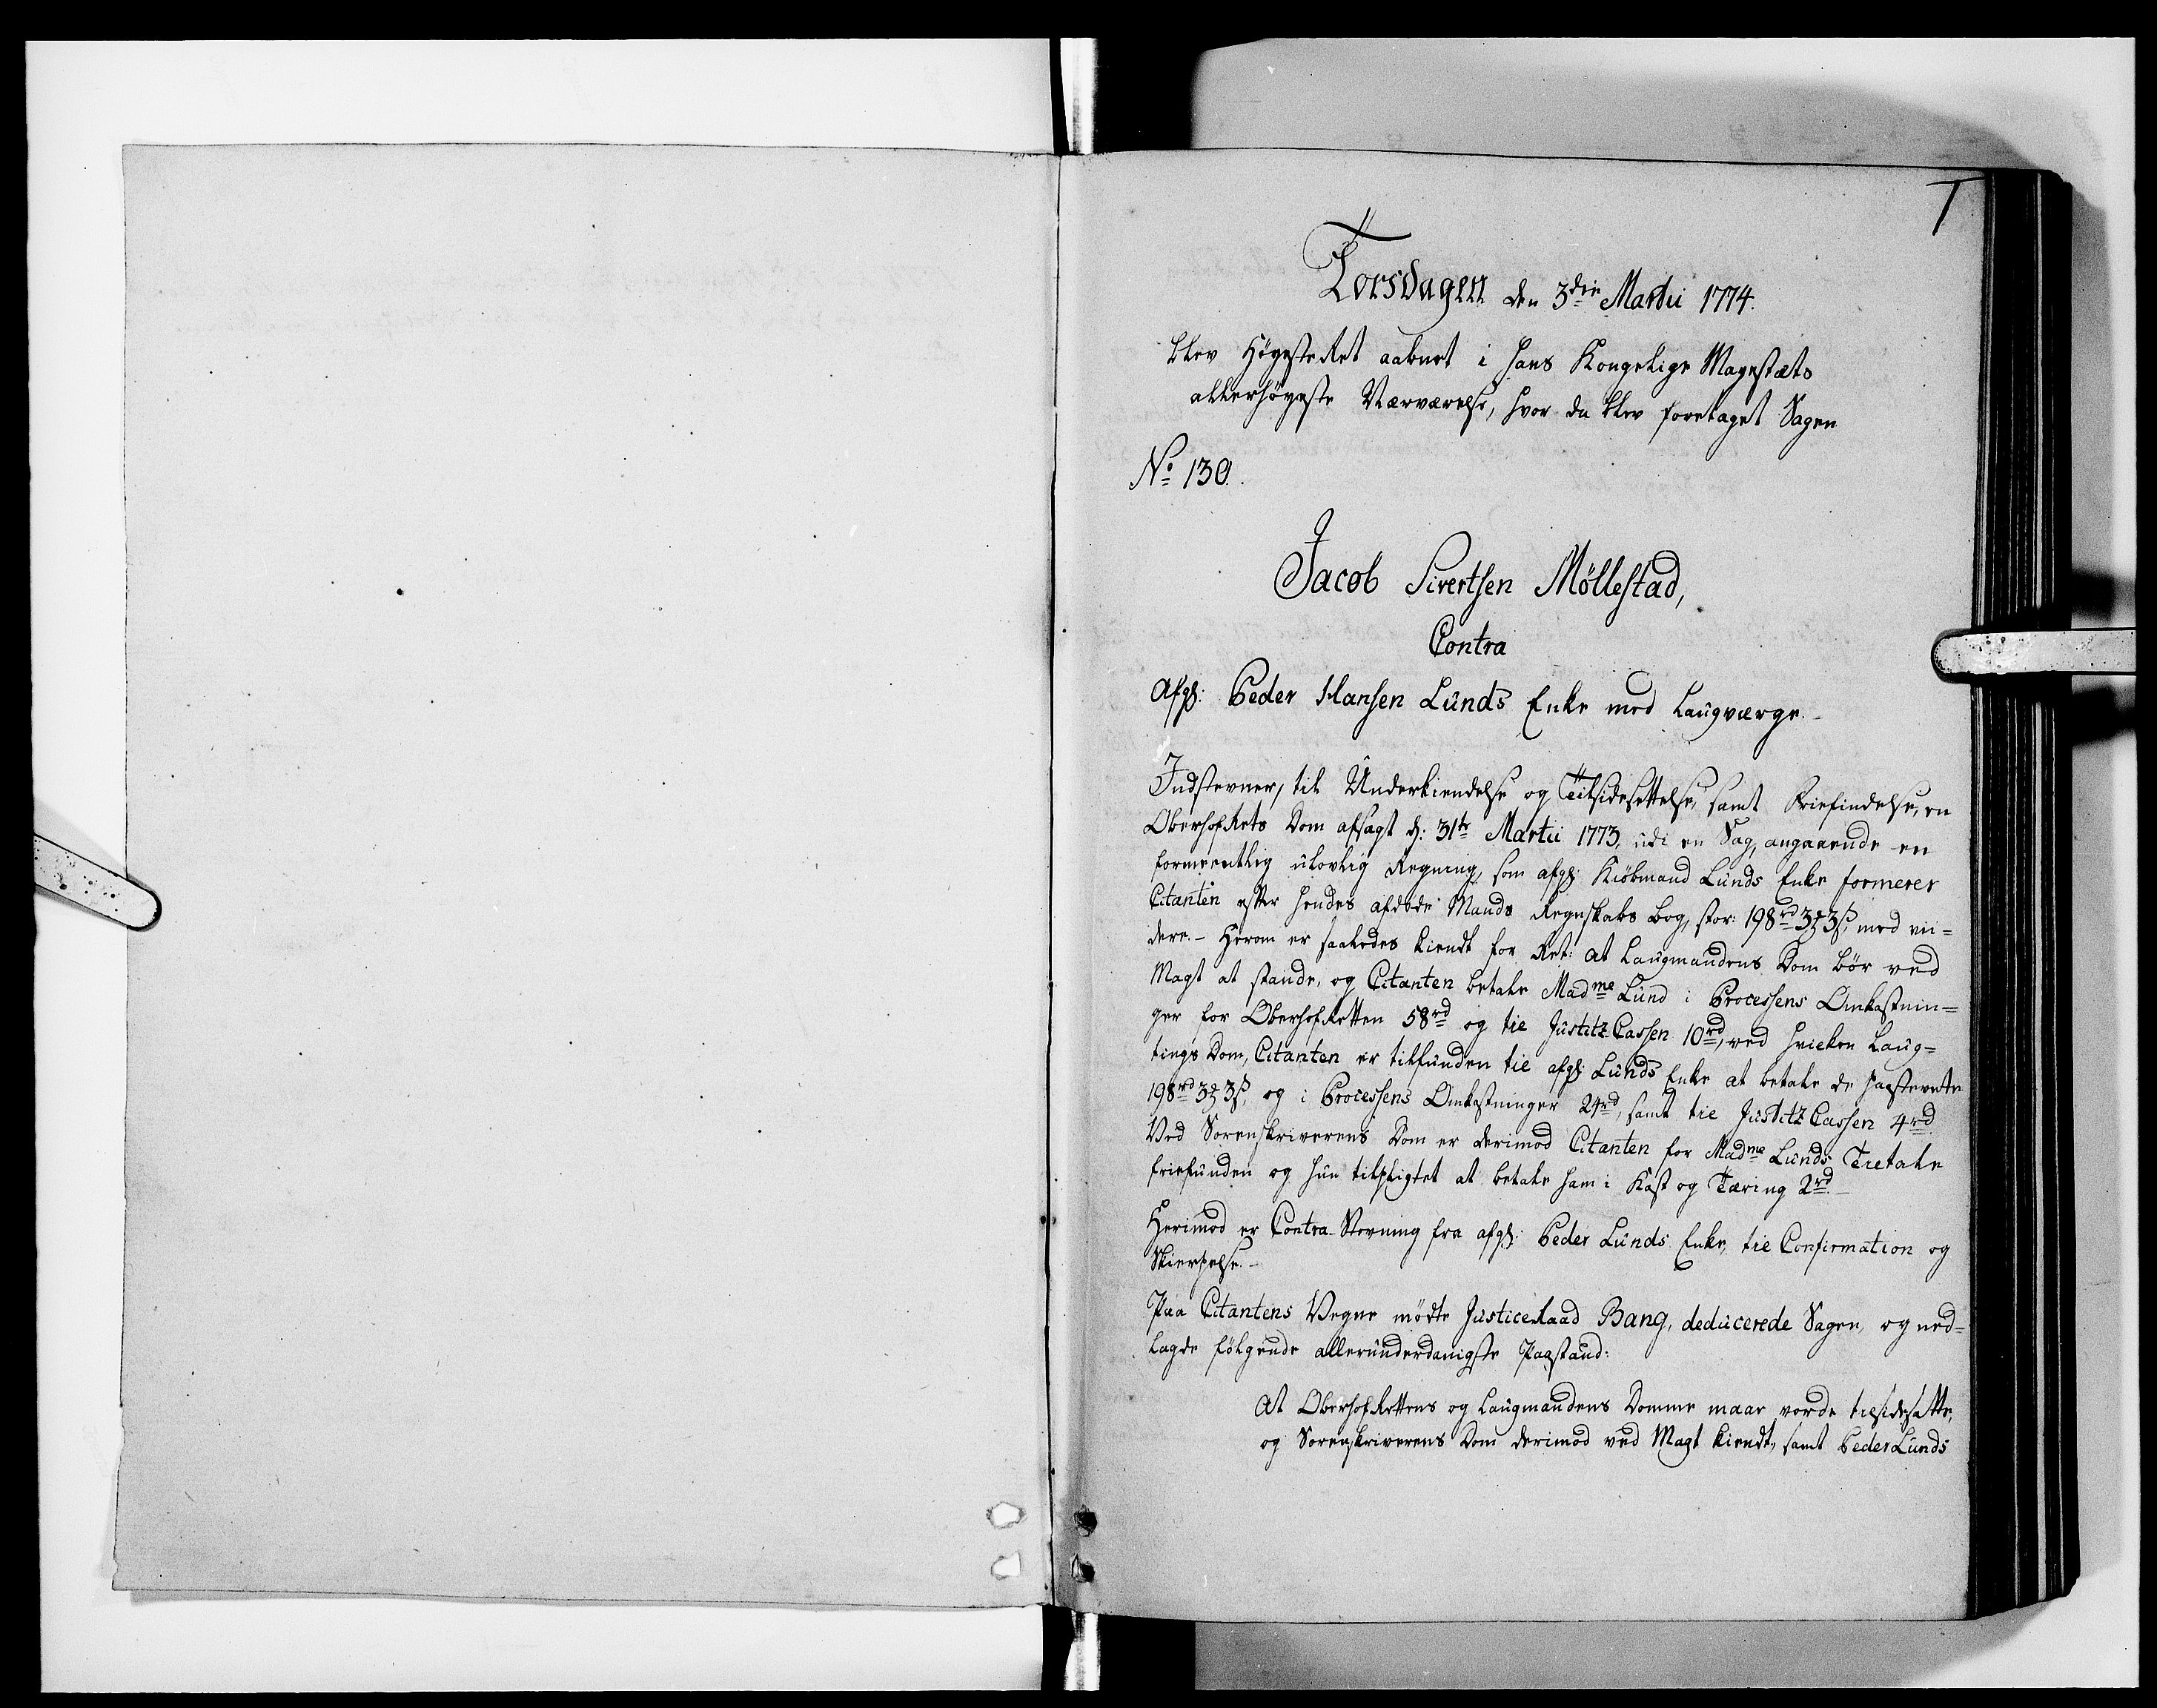 1
Torsdagen den 3die Martii 1774.
blev HøyesteRet aabnet i Hans Kongelige Mayestæts
allerhøyeste Nærværelse, hvor da blev foretaget Sagen
No 130.
Jacob Sivertsen Möllestad,
Contra
Afg: Peder Hansen Lunds Enke med Laugværge.
Indstevner, til Underkiendelse og Tilsidesettelse, samt Friefindelse, en
OberhofRets Dom afsagt d: 31te Martii 1773, udi en Sag, angaaende en
formeentlig ulovlig Regning, som afg: Kiöbmand Lunds Enke formerer
Citanten efter hendes afdøde Mands Regnskabs Bog, stor: 198rd 3 3s, med vii-
dere. - Herom er saaledes kiendt for Ret: At Laugmandens Dom bör ved
Magt at stande, og Citanten betale Madme Lund i Processens Omkostnin=
ger for OberhofRetten 58rd og til Justitz-Cassen 10rd, ved hvilken Laug=
tings Dom, Citanten er tilfunden til afg: Lunds Enke at betale de paastevnte
198rd 3 3s, og i Processens Omkostninger 24rd, samt til Justitz Cassen 4rd.
Ved Sorenskriverens Dom er derimod Citanten for Madme Lunds Tiltale
friefunden og hun tilpligtet at betale ham i Kost og Tæring 2rd. -
Herimod er Contra-Stevning fra afg: Peder Lunds Enke, til Confirmation og
Skierpelse. -
Paa Citantens Vegne mödte JusticeRaad Bang, deducerede Sagen, og ned=
lagde fölgende allerunderdanigste Paastand:
At OberhofRettens og Laugmandens Domme maae vorde tilsidesatte,
og Sorenskriverens Dom derimod ved Magt kiendt, samt Peder Lunds